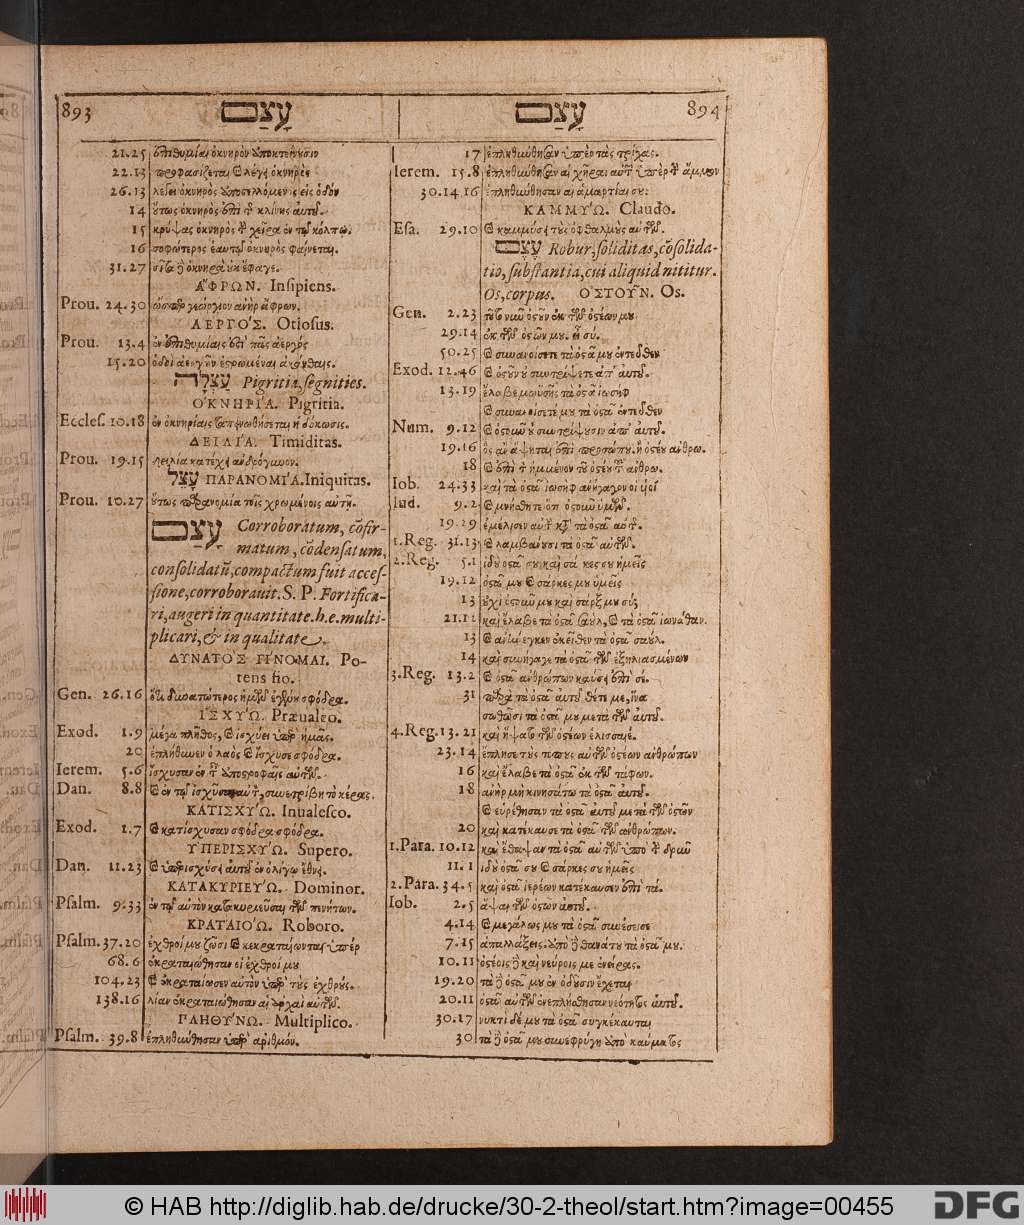 893 עָצַם
21.25 ἐπιθυμίαι ὀκνηρὸν ἀποκτείνουσιν
22.13 προφασίζεται καὶ λέγει ὀκνηρὸς
26.13 λέγει ὀκνηρὸς ἀποστελλόμενος εἰς ὁδόν
14 οὕτως ὀκνηρὸς ἐπὶ τ κλίνης αὐτοῦ.
15 κρύψας ὀκνηρὸς τ χεῖρα ἐν τῷ κόλπῳ.
16 σοφώτερος ἑαυτῷ ὀκνηρὸς φαίνεται.
31.27 σῖτα ὀκνηρὰ οὐκ ἔφαγε.
ἌΦΡΩΝ. Insipiens.
Prou. 24.30 ὥσπερ γεώργιον ἀνὴρ ἄφρων.
ΑΕΡΓΟ΄Σ. Otiosus.
Prou. 13.4 ἐν ἐπιθυμίαις ἐστὶ πᾶς ἀεργὸς
15.20 ὁδοὶ ἀεργῶν ἐστρωμέναι ἀκάνθαις.
עַצְלָה Pigritia, segnities.
ὈΚΝΗΡΙ΄Α. Pigritia.
Eccles. 10.18 ἐν ὀκνηρίαις ταπεινωθήσεται ἡ δόκωσις.
ΔΕΙΛΙ΄Α. Timiditas.
Prou. 19.15 δειλία κατέχει ἀνδρόγυνον.
עָצֵל ΠΑΡΑΝΟΜΙ΄Α. Iniquitas.
Prou. 10.27 οὕτως παρανομία τοῖς χρωμένοις αὐτῇ.
עָצַם Corroboratum, cōfir-
matum, cōdensatum,
consolidatū, compactum fuit acces-
sione, corroborauit. S. P. Fortifica-
ri, augeri in quantitate. h.e. multi-
plicari, & in qualitate.
ΔΥΝΑΤΟ΄Σ ΓΙ΄ΝΟΜΑΙ. Po-
tens fio.
Gen. 26.16 ὅτι δυνατώτερος ἡμῶν ἐγένου σφόδρα.
ἸΣΧΥ΄Ω. Præualeo.
Exod. 1.9 μέγα πλῆθος, καὶ ἰσχύει ὑπὲρ ἡμᾶς.
20 ἐπλήθυνεν ὁ λαὸς καὶ ἴσχυσε σφόδρα.
Ierem. 5.6 ἴσχυσαν ἐν τ ἀποστροφαῖς αὐτῶν.
Dan. 8.8 καὶ ἐν τῷ ἰσχῦσαι αὐτὸν, συνετρίβη τὸ κέρας.
ΚΑΤΙΣΧΥ΄Ω. Inualesco.
Exod. 1.7 καὶ κατίσχυσαν σφόδρα σφόδρα.
ὙΠΕΡΙΣΧΥ΄Ω. Supero.
Dan. 11.23 καὶ ὑπερισχύσει αὐτοῦ ἐν ὀλίγῳ ἔθνει.
ΚΑΤΑΚΥΡΙΕΥ΄Ω. Dominor.
Psalm. 9.33 ἐν τῷ αὐτὸν κατακυριεῦσαι τῶν πενήτων.
ΚΡΑΤΑΙΟ΄Ω. Roboro.
Psalm. 37.20 ἐχθροί μου ζῶσι καὶ κεκραταίωνται ὑπὲρ
68.6 ἐκραταιώθησαν οἱ ἐχθροί μου
104.23 καὶ ἐκραταίωσεν αὐτὸν ὑπὲρ τοὺς ἐχθρούς.
138.16 λίαν ἐκραταιώθησαν αἱ ἀρχαὶ αὐτῶν.
ΠΛΗΘΥ΄ΝΩ. Multiplico.
Psalm. 39.8 ἐπληθύνθησαν ὑπὲρ ἀριθμόν.
עָצַם 894
17 ἐπληθύνθησαν ὑπὲρ τὰς τρίχας.
Ierem. 15.8 ἐπληθύνθησαν αἱ χῆραι αὐτῶν ὑπὲρ τ ἄμμον
30.14.16 ἐπληθύνθησαν αἱ ἁμαρτίαι σου:
ΚΑΜΜΥ΄Ω. Claudo.
Esa. 29.10 καὶ καμμύσει τοὺς ὀφθαλμοὺς αὐτῶν.
עֶצֶם Robur, soliditas, cōsolida-
tio, substantia, cui aliquid nititur.
Os, corpus. ὈΣΤΟΥ͂Ν. Os.
Gen. 2.23 τοῦτο νῦν ὀστοῦν ἐκ τῶν ὀστέων μου
29.14 ἐκ τῶν ὀστῶν μου. εἶ σύ.
50.25 καὶ συνανοίσετε τὰ ὀστᾶ μου ἐντεῦθεν
Exod. 12.46 καὶ ὀστοῦν οὐ συντρίψετε ἀπ' αὐτοῦ.
13.19 ἔλαβε μωϋσῆς τὰ ὀστᾶ ἰωσὴφ
καὶ συνανοίσετέ μου τὰ ὀστᾶ ἐντεῦθεν
Num. 9.12 καὶ ὀστοῦν οὐ συντρίψουσιν ἀπ' αὐτοῦ.
19.16 ὃς ἂν ἅψηται ἐπὶ προσώπου. ἢ ὀστέου ἀνθρω.
18 καὶ ἐπὶ τ ἡμμένον τοῦ ὀστέου τ ἀνθρω.
Iob. 24.33 καὶ τὰ ὀστᾶ ἰωσὴφ ἀνήγαγον οἱ υἱοὶ
Iud. 9.2 καὶ μνήσθητε ὅτι ὀστοῦν ὑμῶν.
19.29 ἐμέλισεν αὐτ κατὰ τὰ ὀστᾶ αὐτ.
1.Reg. 31.13 καὶ λαμβάνουσι τὰ ὀστᾶ αὐτῶν.
2.Reg. 5.1 ἰδοὺ ὀστᾶ σου καὶ σάρκες σου ἡμεῖς
19.12 ὀστᾶ μου καὶ σάρκες μου ὑμεῖς
13 οὐχὶ ὀστοῦν μου καὶ σάρξ μου σύ;
21.12 καὶ ἔλαβε τὰ ὀστᾶ σαουλ, καὶ τὰ ὀστᾶ ἰωνάθαν.
13 καὶ ἀνήνεγκεν ἐκεῖθεν τὰ ὀστᾶ σαούλ.
14 καὶ συνήγαγε τὰ ὀστᾶ τῶν ἐξηλιασμένων
3.Reg. 13.2 καὶ ὀστᾶ ἀνθρώπων καύσει ἐπὶ σέ.
31 παρὰ τὰ ὀστᾶ αὐτοῦ θέτε με, ἵνα
σωθῶσι τὰ ὀστᾶ μου μετὰ τῶν αὐτοῦ.
4.Reg. 13.21 καὶ ἥψατο τῶν ὀστέων ἑλισσαιέ.
23.14 ἔπλησε τοὺς τόπους αὐτῶν ὀστέων ἀνθρώπων
16 καὶ ἔλαβε τὰ ὀστᾶ ἐκ τῶν τάφων.
18 ἀνὴρ μὴ κινησάτω τὰ ὀστᾶ αὐτοῦ.
καὶ εὑρέθησαν τὰ ὀστᾶ αὐτοῦ μετὰ τῶν ὀστῶν
20 καὶ κατέκαυσε τὰ ὀστᾶ τῶν ἀνθρώπων.
1.Para. 10.12 καὶ ἔθαψαν τὰ ὀστᾶ αὐτῶν ὑπὸ τ δρῦν
11.1 ἰδοὺ ὀστᾶ σου καὶ σάρκες σου ἡμεῖς
2.Para. 34.5 καὶ ὀστᾶ ἱερέων κατέκαυσεν ἐπὶ τά.
Iob. 2.5 ἅψαι τῶν ὀστῶν αὐτοῦ.
4.14 καὶ μεγάλως μου τὰ ὀστᾶ συνέσεισε
7.15 ἀπαλλάξεις. ἀπὸ δὲ θανάτου τὰ ὀστᾶ μου.
10.11 ὀστέοις δὲ καὶ νεύροις με ἐνείρας.
19.20 τὰ δὲ ὀστᾶ μου ἐν ὀδοῦσιν ἔχεται
20.11 ὀστᾶ αὐτοῦ ἐνεπλήσθησαν νεότητος αὐτοῦ.
30.17 νυκτὶ δέ μου τὰ ὀστᾶ συγκέκαυται
30 τὰ δὲ ὀστᾶ μου συνεφρύγη ἀπὸ καύματος
© HAB http://diglib.hab.de/drucke/30-2-theol/start.htm?image=00455
DFG